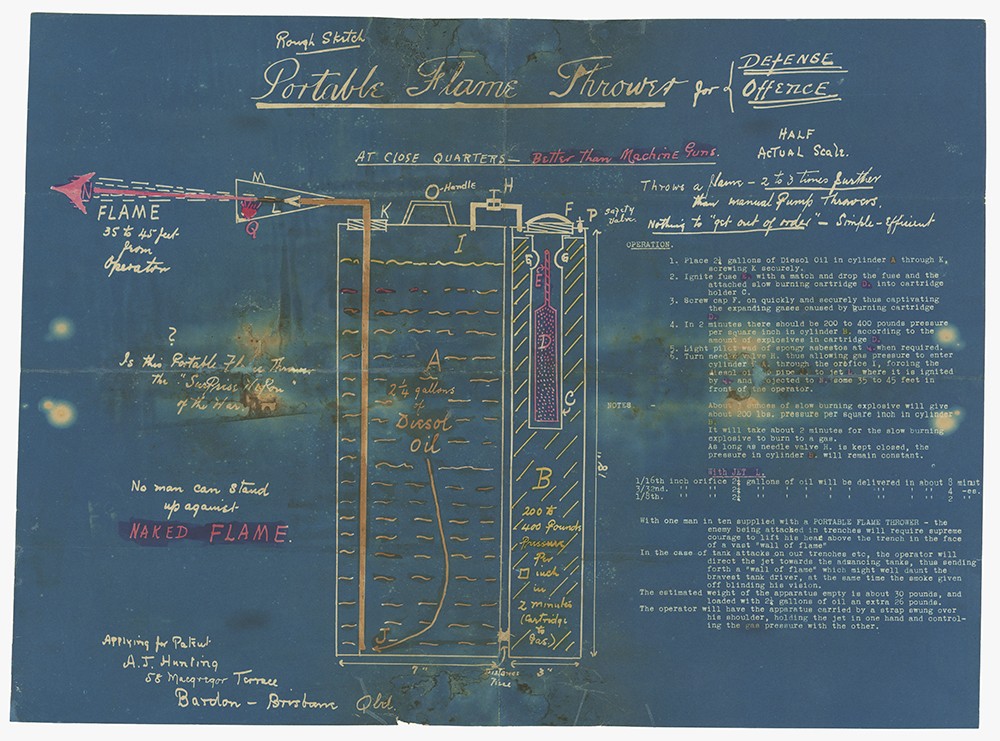 Rough Sketch
Portable Flame Thrower for
DEFENSE
OFFENCE
HALF
ACTUAL Scale.
AT CLOSE QUARTERS — Better than Machine Guns.
Throws a flame – 2 to 3 times further
than manual Pump throwers.
Nothing to "get out of order" – Simple – Efficient
N
M
L
Q
FLAME
35 to 45 feet
from
Operator
K
O-Handle
H
F
P
Safety
Valve.
I
G
G
E
D
C
A
2¼ gallons
of
Diesol
Oil
B
200 to
400 Pounds
Pressure
Per
□ inch
in
2 minutes
(Cartridge
to
Gas.)
J
7"
3"
18"
Distance
Piece
?
Is this Portable Flame Thrower
the "Surprise Weapon"
of the War
No man can stand
up against
NAKED FLAME.
Applying for Patent
A.J. Hunting
58 Macgregor Terrace
Bardon – Brisbane Qld.
OPERATION.
1. Place 2¼ gallons of Diesol Oil in cylinder A through K,
screwing K securely.
2. Ignite fuse E. with a match and drop the fuse and the
attached slow burning cartridge D. into cartridge
holder C.
3. Screw cap F. on quickly and securely thus captivating
the expanding gases caused by burning cartridge
D.
4. In 2 minutes there should be 200 to 400 pounds pressure
per square inch in cylinder B. according to the
amount of explosives in cartridge D.
5. Light pilot wad of spongy asbestos at when required.
6. Turn needle valve H. thus allowing gas pressure to enter
cylinder A. through the orifice I, forcing the
diesol oil pipe to jet L. where it is ignited
by and ejected to N. some 35 to 45 feet in
front of the operator.
NOTES
About ounces of slow burning explosive will give
about 200 lbs. pressure per square inch in cylinder
B.
It will take about 2 minutes for the slow burning
explosive to burn to a gas.
As long as needle valve H. is kept closed, the
pressure in cylinder B. will remain constant.
With JET L.
1/16th inch orifice 2¼ gallons of oil will be delivered in about 8 minut
3/32nd. " " 2¼ " " " " " " " " 4 -es.
1/8th. " " 2¼ " " " " " " " " 2
With one man in ten supplied with a PORTABLE FLAME THROWER - the
enemy being attacked in trenches will require supreme
courage to lift his head above the trench in the face
of a vast "wall of flame"
In the case of tank attacks on our trenches etc, the operator will
direct the jet towards the advancing tanks, thus sending
forth a "wall of flame" which might well daunt the
bravest tank driver, at the same time the smoke given
off blinding his vision.
The estimated weight of the apparatus empty is about 30 pounds, and
loaded with 2¼ gallons of oil an extra 26 pounds.
The operator will have the apparatus carried by a strap swung over
his shoulder, holding the jet in one hand and control-
ing the gas pressure with the other.